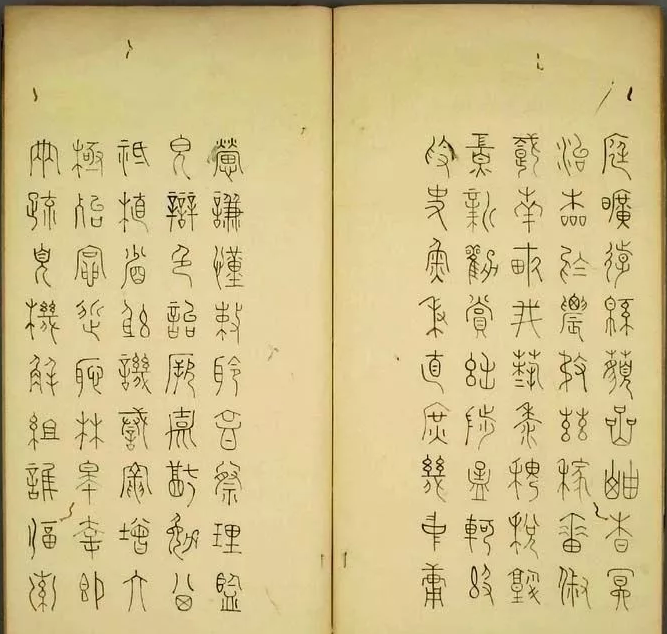 庭曠遠綿邈巖岫杳冥
治本於農務茲稼穡俶
載南畝我藝黍稷稅熟
貢新勸賞黜陟孟軻敦
素史魚秉直庶幾中庸
勞謙謹敕聆音察理鑑
貌辯色詒厥嘉猷勉其
祗植省躬譏誡寵增抗
極殆辱近恥林皋幸即
兩疏見機解組誰逼索